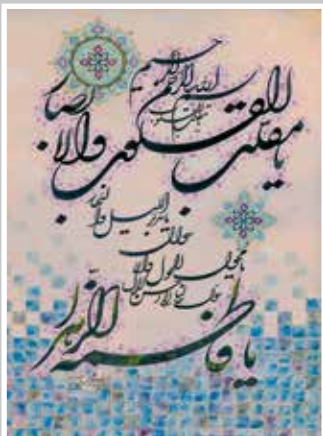 بسم الله الرحمن الرحیم
یا مقلب القلوب والابصار
یا مدبر اللیل والنهار
یا محول الحول والاحوال
حول حالنا الی احسن الحال
یا فاطمه الزهرا